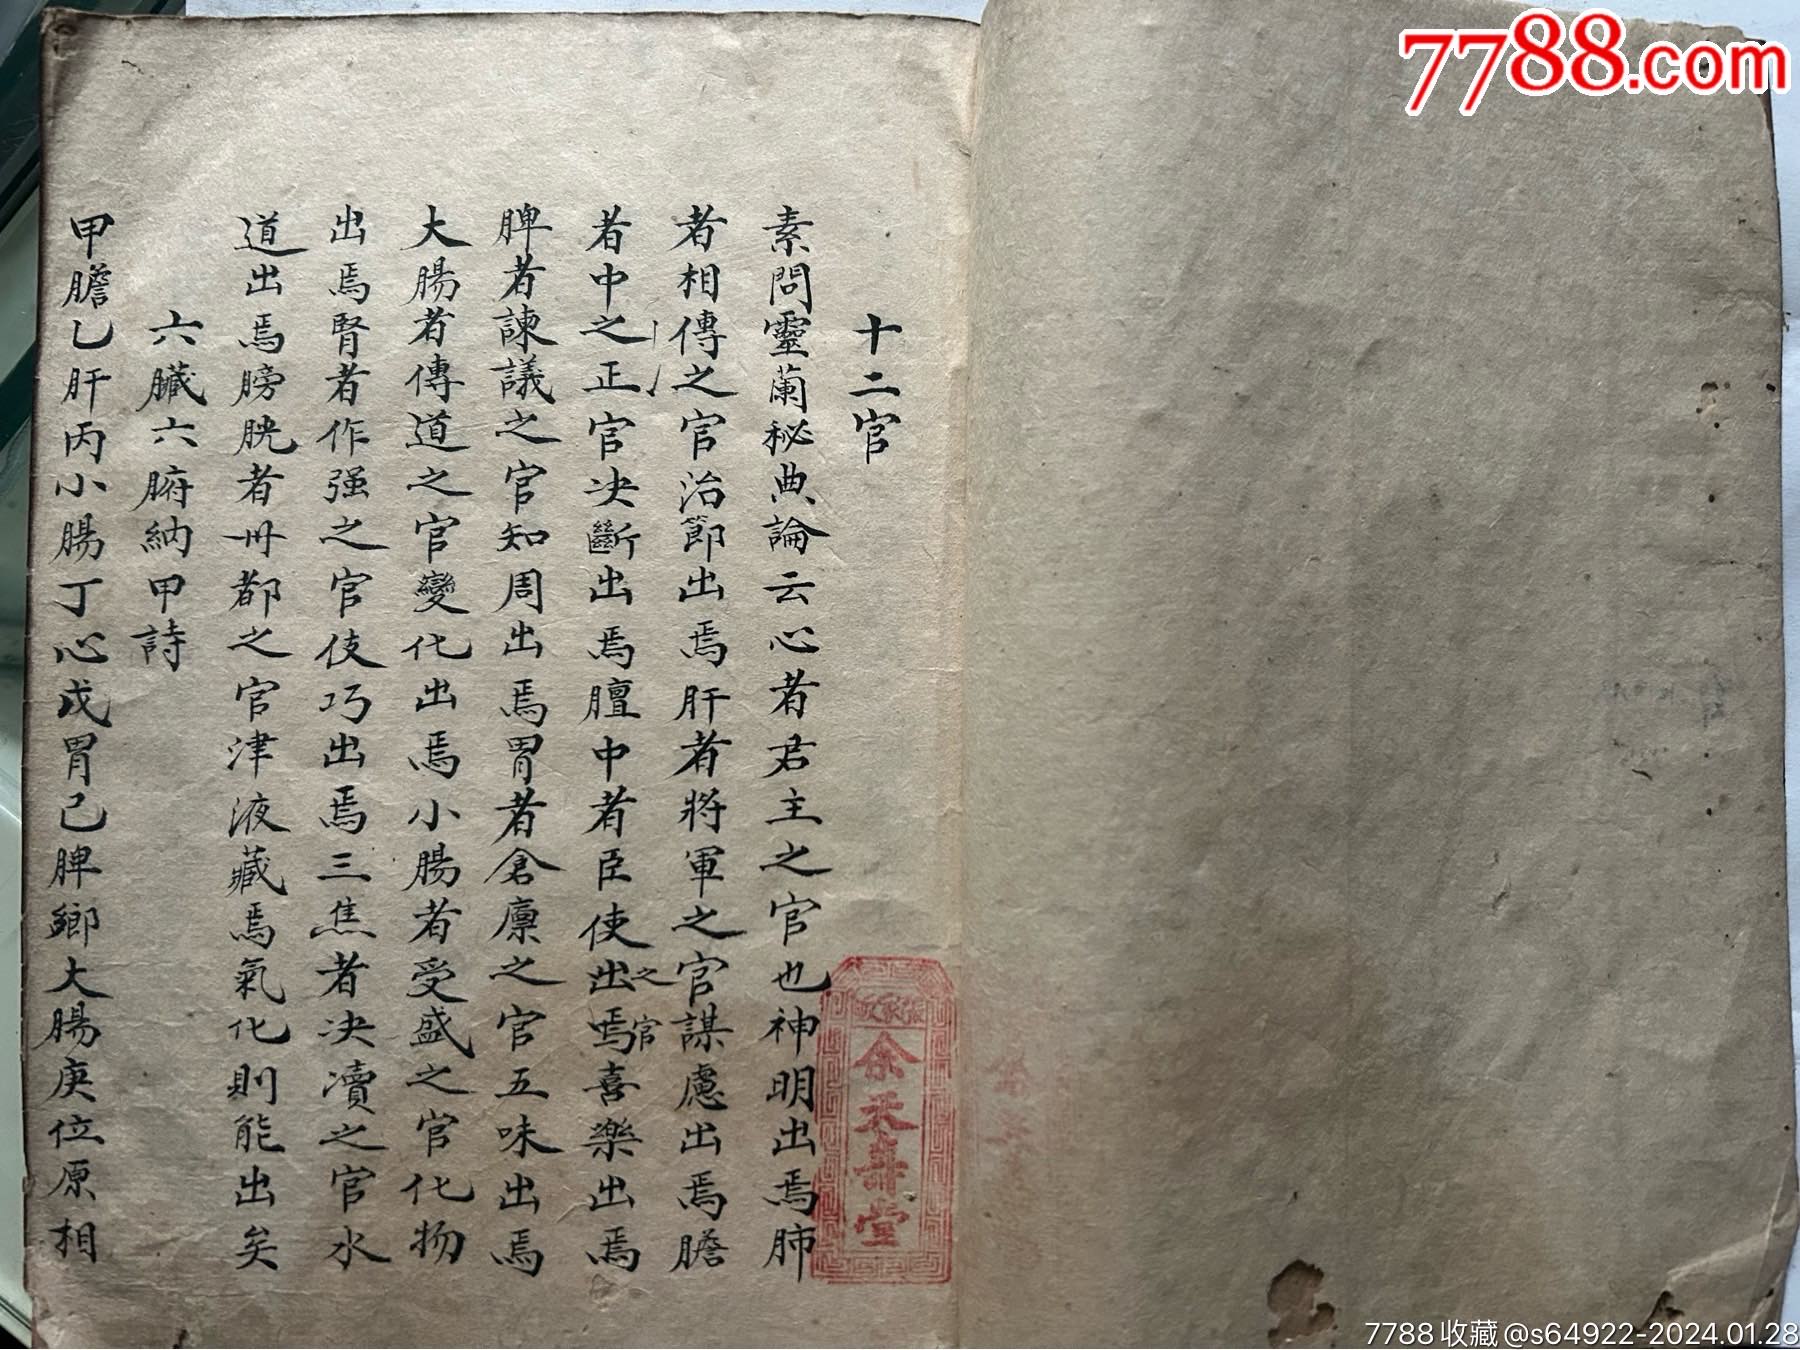 7788.com
十二官
素問靈蘭秘典論云心者君主之官也神明出焉肺
者相傳之官治節出焉肝者將軍之官謀慮出焉膽
者中之正官决斷出焉膻中者臣使出焉喜樂出焉
之官
脾者諫議之官知周出焉胃者倉廪之官五味出焉
大腸者傳道之官變化出焉小腸者受盛之官化物
出焉腎者作强之官伎巧出焉三焦者决瀆之官水
道出焉膀胱者州都之官津液藏焉氣化則能出矣
六臟六腑納甲詩
甲膽乙肝丙小腸丁心戊胃己脾鄉大腸庚位原相
余天壽堂
7788收藏@s64922-2024.01.28